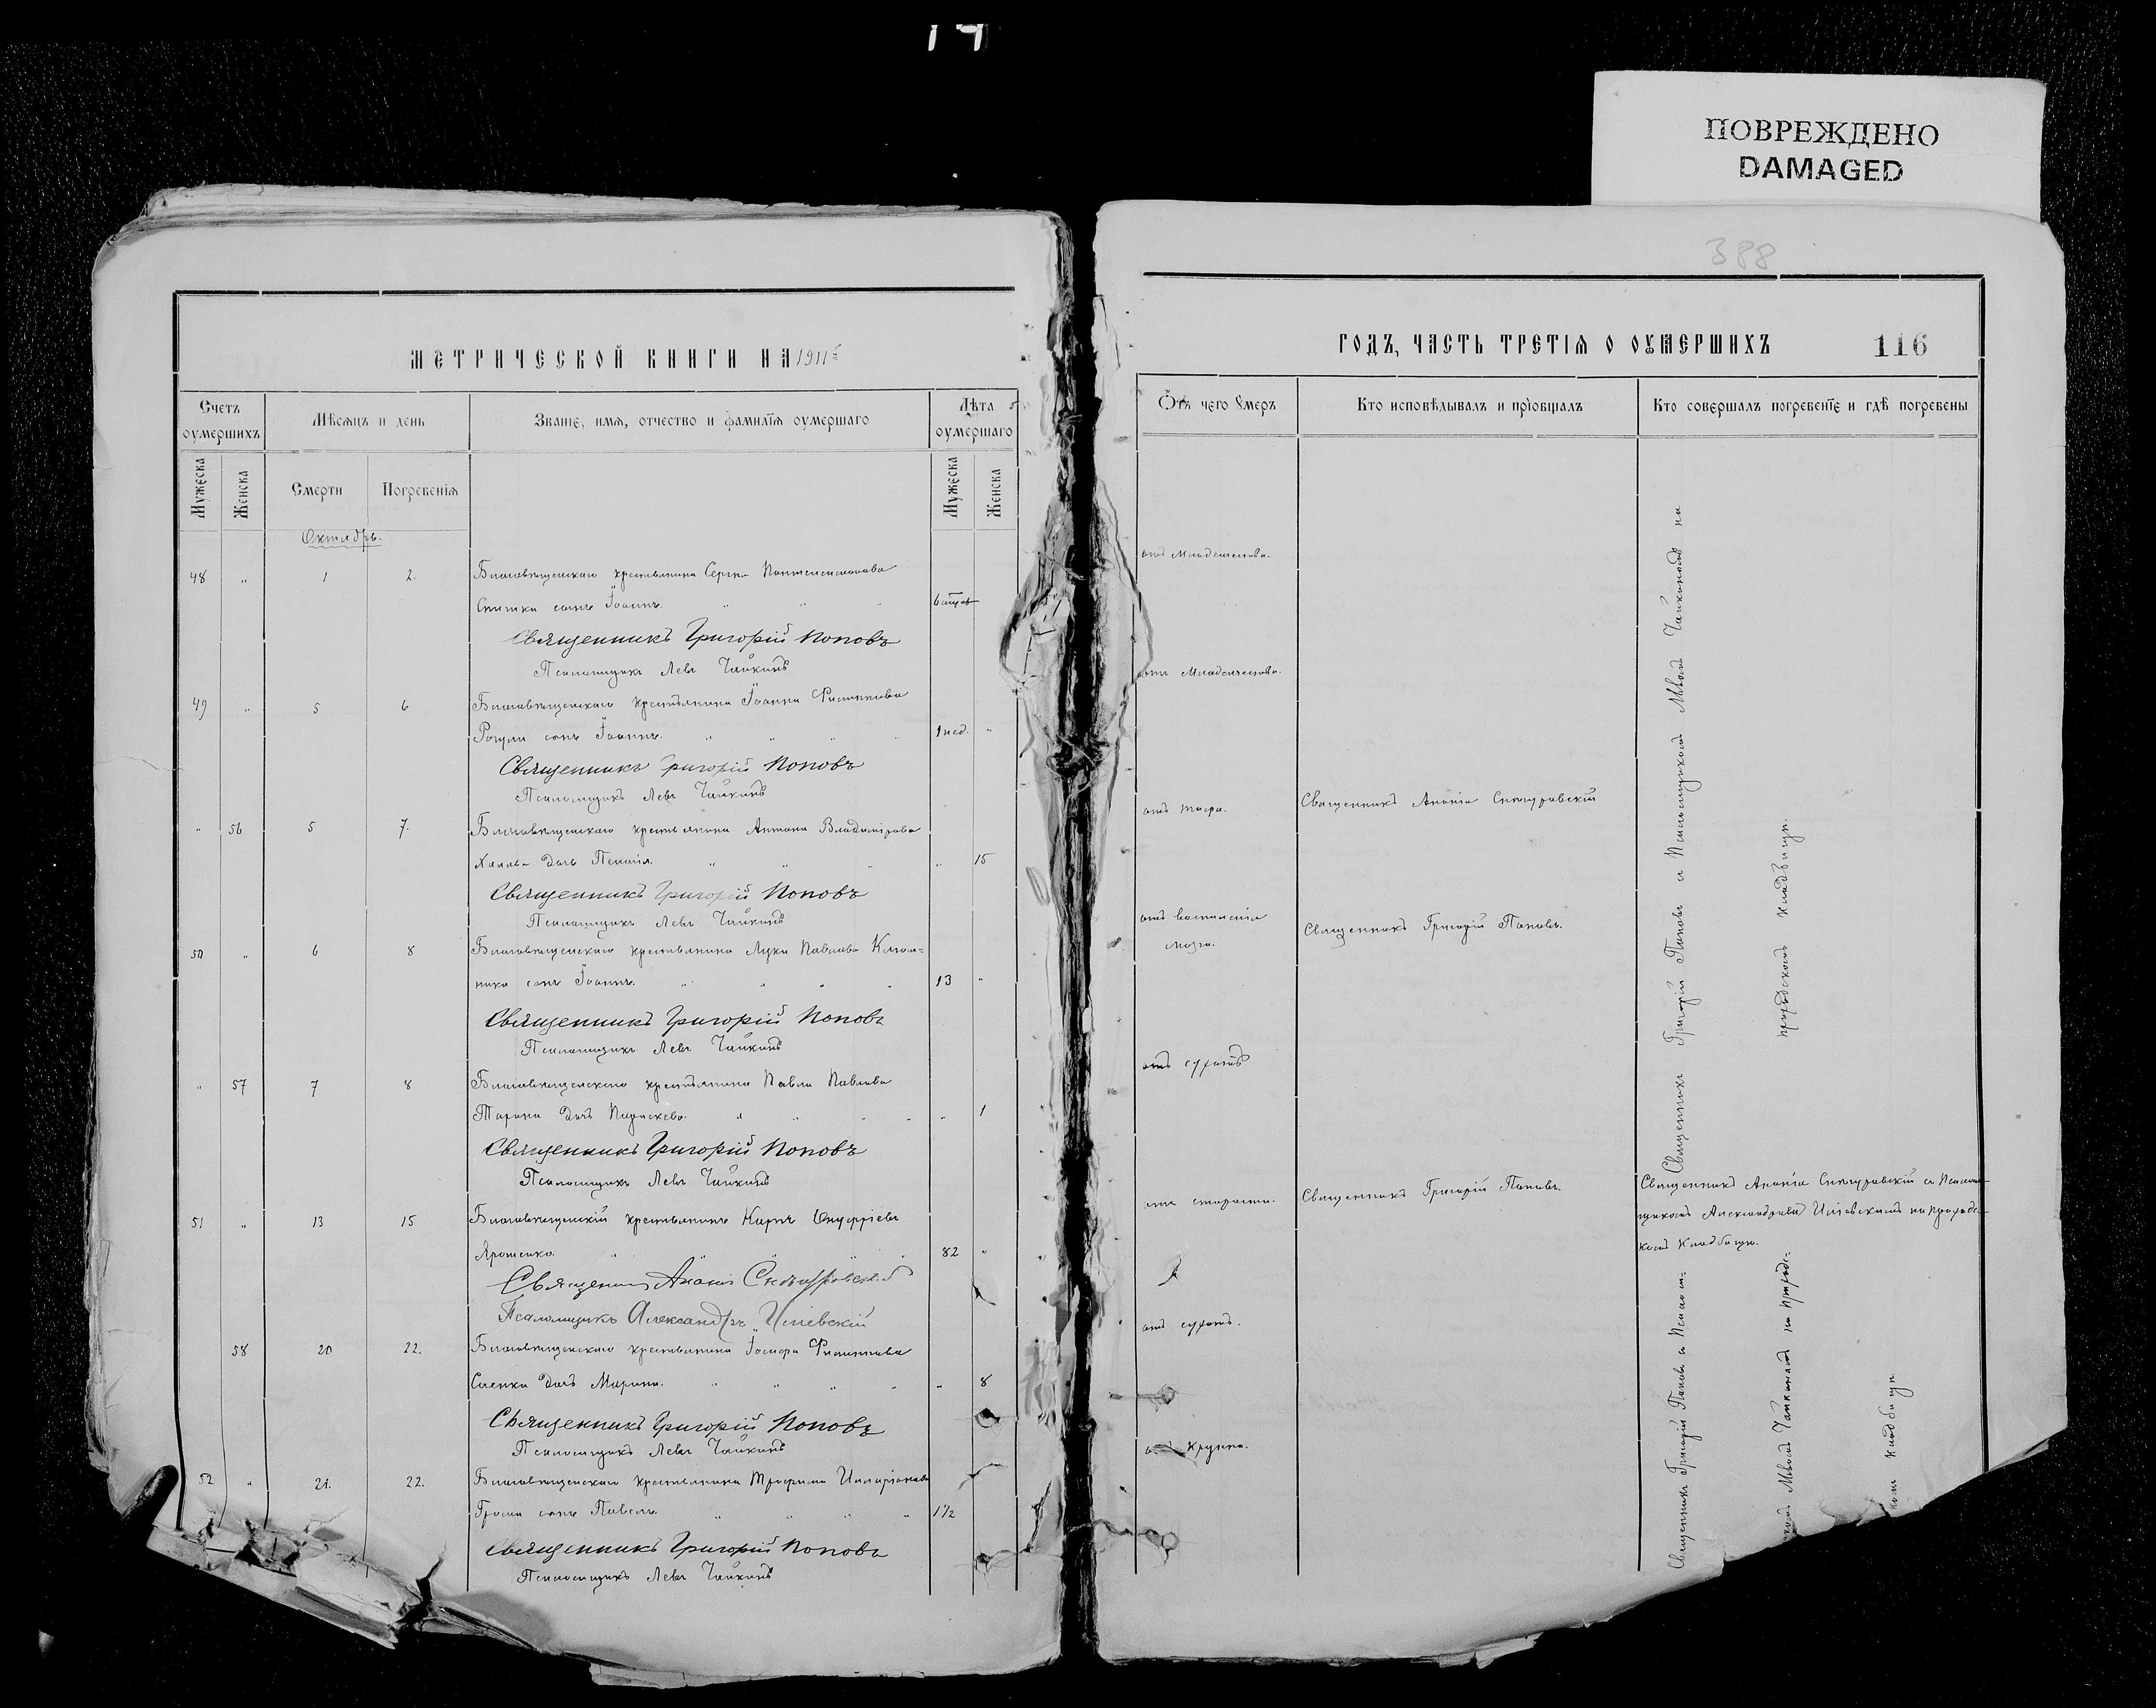 14
ПОВРЕЖДЕНО
DAMAGED
388
МЕТРИЧЕСКОЙ КНИГИ НА 1911й
Счетъ оумершихъ
Мѣсяцъ и день
Званіе, имя, отчество и фамилїя оумершаго
Лѣта оумершаго
Мужеска
Женска
Смерти
Погребенія
Мужеска
Женска
Октябрь.
48 " 1 2. Благовѣщенскаго крестьянина Сергія Пантелеимонова
сынъ Іоаннъ. " " "
Священникъ Григорій Поповъ
Псаломщикъ Левъ Чайкинъ
49 " 5 6 Благовѣщенскаго крестьянина Іоанна Филиппова
Рогули сынъ Іоаннъ. " " " " 1 нед. "
Священникъ Григорій Поповъ
Псаломщикъ Левъ Чайкинъ
" 56 5 7. Благовѣщенскаго крестьянина Антона Владимірова
дочь Пелагія. " " " " 15
Священникъ Григорій Поповъ
Псаломщикъ Левъ Чайкинъ
50 " 6 8 Благовѣщенскаго крестьянина Луки Павлова
сынъ Іоаннъ. " " " " 13 "
Священникъ Григорій Поповъ
Псаломщикъ Левъ Чайкинъ
" 57 7 8 Благовѣщенскаго крестьянина Павла Павлова
Тарана дочь Параскева. " " " " " 1
Священникъ Григорій Поповъ
Псаломщикъ Левъ Чайкинъ
51 " 13 15 Благовѣщенскій крестьянинъ Карпъ Онуфріевъ
Ярошенко. " " " " 82 "
Священникъ Ананія
Псаломщикъ Александръ
58 20 22. Благовѣщенскаго крестьянина Іосифа Филиппова
дочь Марина. " " " " " 8
Священникъ Григорій Поповъ
Псаломщикъ Левъ Чайкинъ
52 " 21. 22. Благовѣщенскаго крестьянина Трофима Иларіонова
сынъ Павелъ. " " " " 1½
Священникъ Григорій Поповъ
Псаломщикъ Левъ Чайкинъ
ГОДЪ, ЧАСТЬ ТРЕТІЯ О ОУМЕРШИХЪ
116
Ѿ чего оумеръ
Кто исповѣдывалъ и прїобщалъ
Кто совершалъ погребенїе и гдѣ погребены
отъ младенчества.
отъ младенчества.
отъ тифа. Священникъ Ананія
отъ воспаленія
мозга.
Священникъ Григорій Поповъ.
отъ сухотъ
отъ старости. Священникъ Григорій Поповъ.
отъ сухотъ.
отъ крупа.
Священникъ Григорій Поповъ и Псаломщикомъ Львомъ Чайкинымъ на
приходскомъ кладбищѣ.
Священникъ Ананія и Псалом-
щикомъ Александромъ на приходс-
комъ кладбищѣ.
Священникъ Григорій Поповъ и Псалом-
щикомъ Львомъ Чайкинымъ на приходс-
комъ кладбищѣ